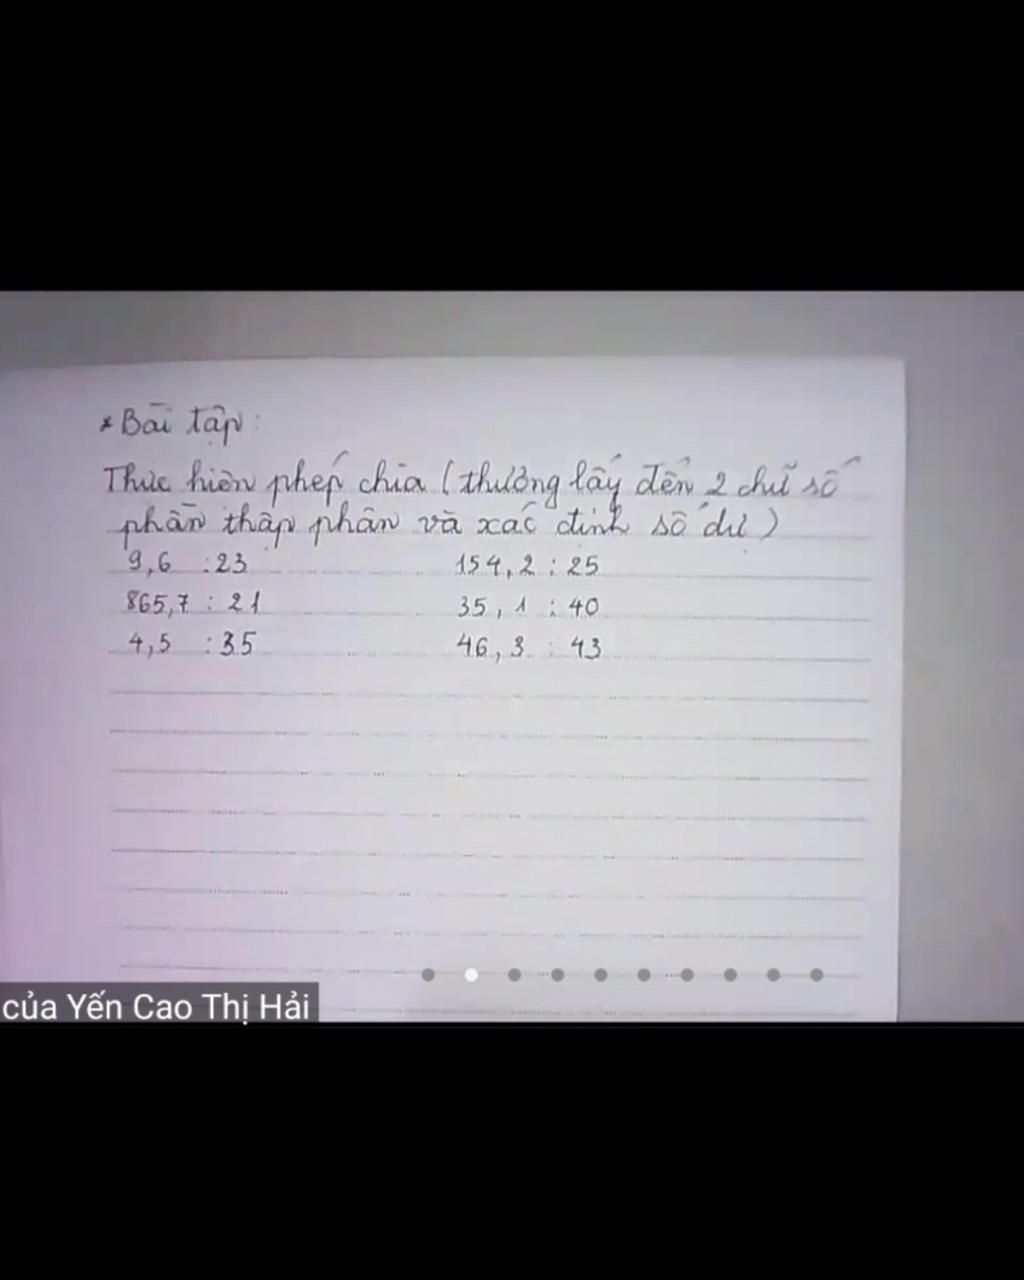 * Bài tập:
Thực hiện phép chia (thương lấy đến 2 chữ số
phần thập phân và xác định số dư)
9,6 : 23 154,2 : 25
865,7 : 21 35,1 : 40
4,5 : 35 46,3 : 43
của Yến Cao Thị Hải